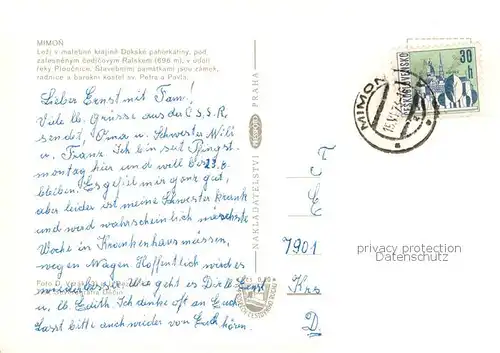 MIMOŇ
Leží v malebné krajině Dokské pahorkatiny, pod
zalesněným čedičovým Ralskem (696 m), v údolí
řeky Ploučnice. Stavebními památkami jsou zámek,
radnice a barokní kostel sv. Petra a Pavla.
Lieber Ernst mit Fam!
Viele lb. Grüsse aus der Č.S.S.R.
sendet, Oma u. Schwester Mili
u. Franz. Ich bin seit Pfingst-
montag hier und will bis 23.6.
bleiben. Es gefällt mir ganz gut,
aber leider ist meine Schwester krank
und werd wahrscheinlich nächste
Woche in Krankenhaus müssen,
wegen Magen. Hoffentlich wird es
wieder besser. Wie geht es Dir lb. Ernst
u. lb. Edith. Ich denke oft an Euch
Lasst bitte auch wieder von Euch hören.
Foto D.
NAKLADATELSTVÍ PRESSFOTO PRAHA
MIMOŇ
a
30
h
ČESKOSLOVENSKO
7901
Krs
D.
privacy protection
Datenschutz